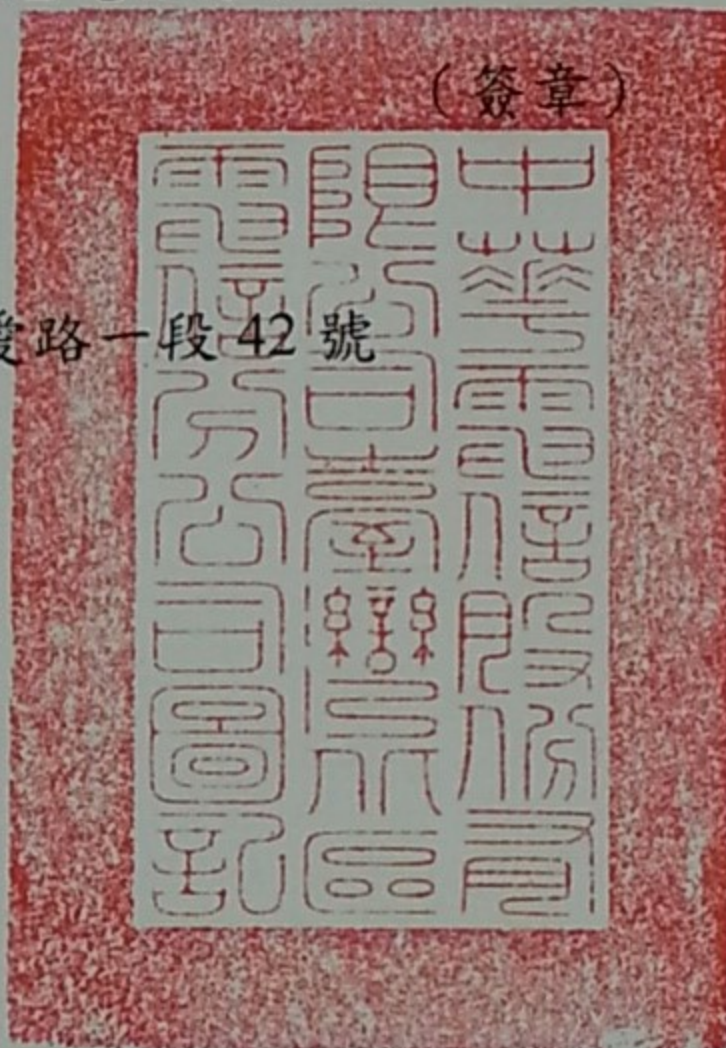 （簽章）
愛路一段 42 號
中華電信股份有
限公司臺灣北區
電信分公司圖記